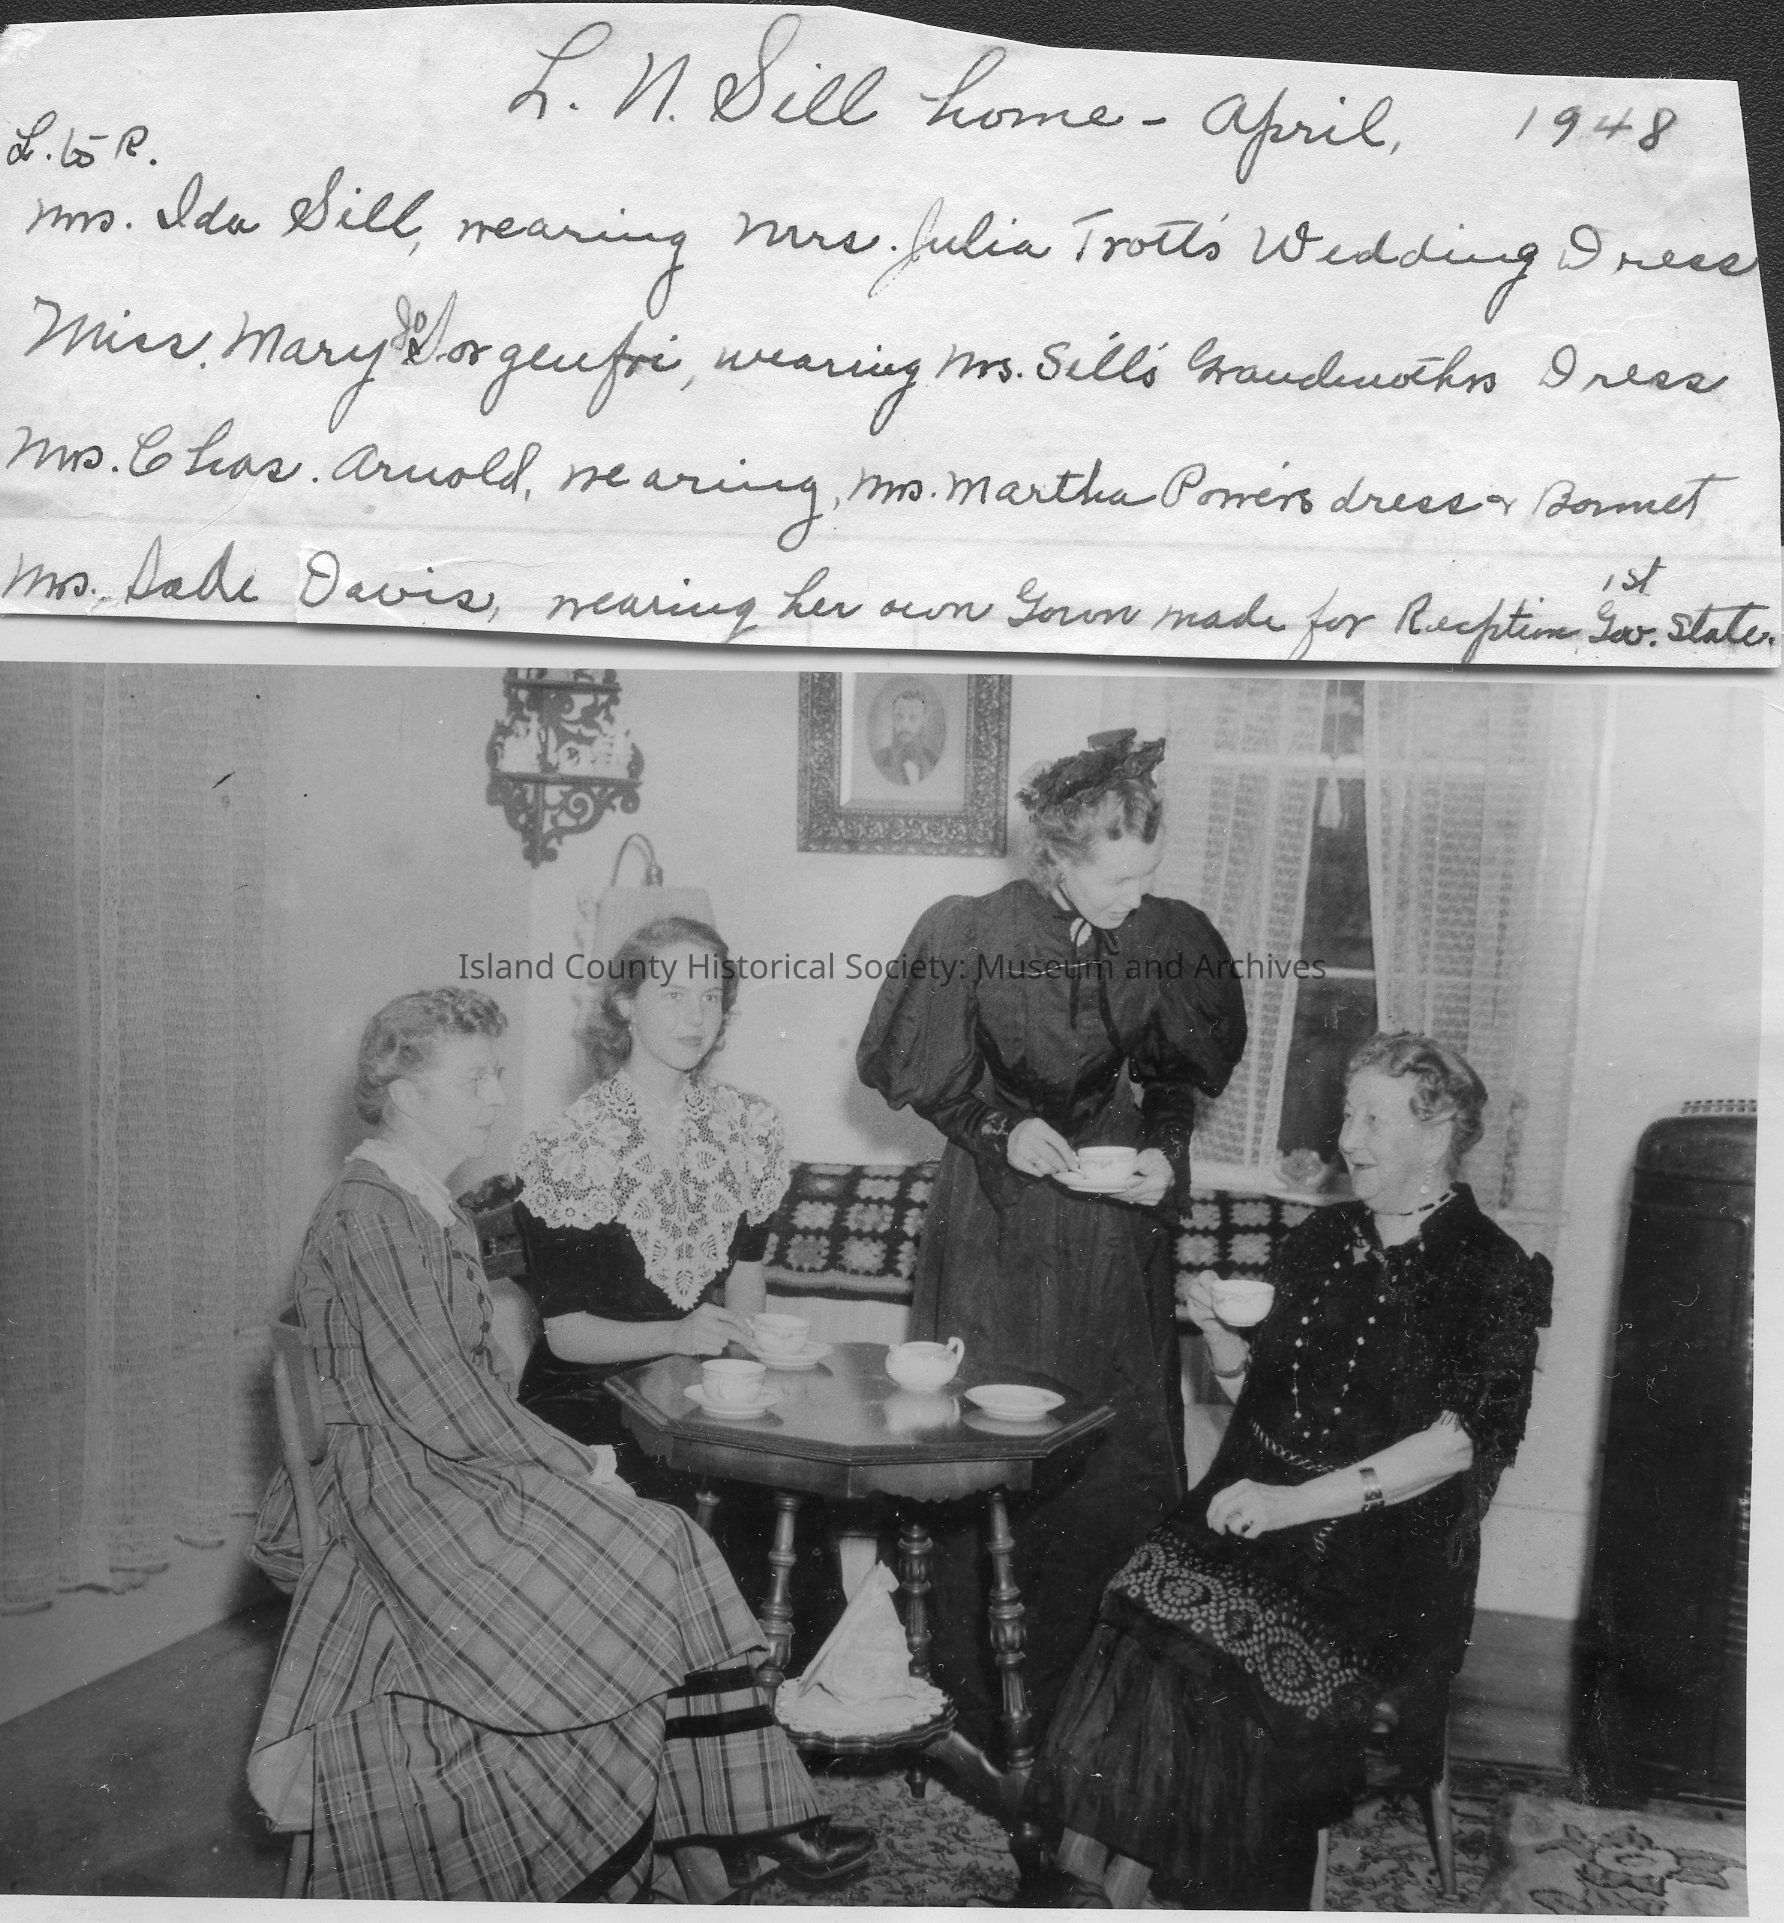 L. N. Sill home - April, 1948
L. to R.
Mrs. Ida Sill, wearing Mrs. Julia Trott's Wedding Dress
Miss. Mary Jo Sorgenfri, wearing Mrs. Sill's Grandmothers Dress
Mrs. Chas. Arnold, wearing, Mrs. Martha Power's dress & Bonnet
Mrs. Davis, wearing her own Gown made for Reception 1st Gov. State.
Island County Historical Society: Museum and Archives